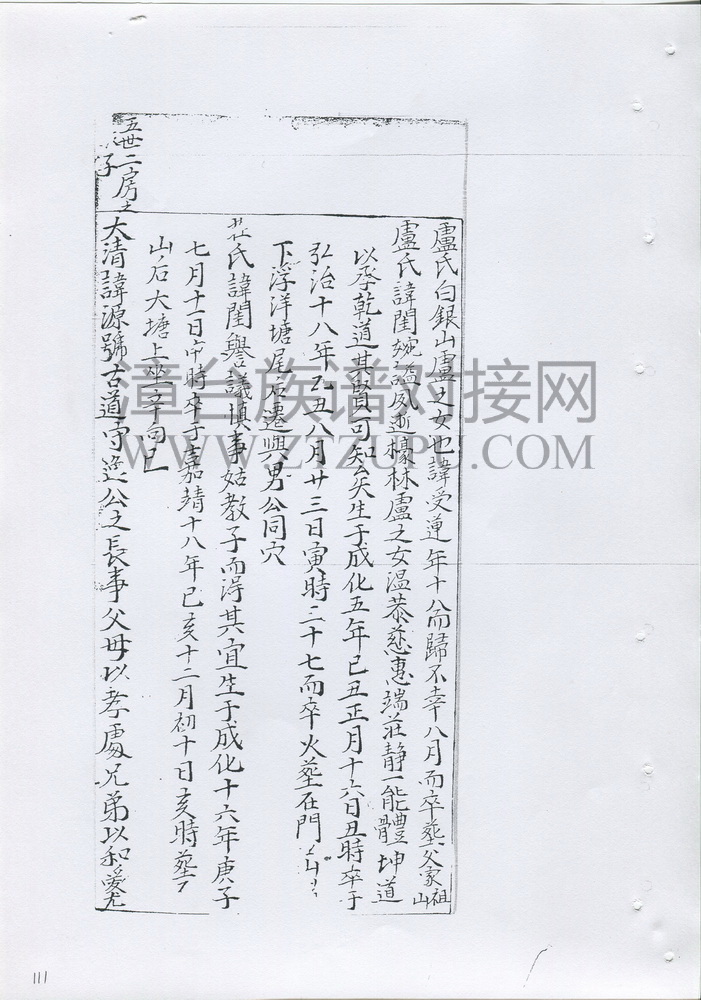 盧氏白銀山盧之女也諱受蓮年十八而歸不幸八月而卒葬父家祖山
盧氏諱閨婉謚夙逝檺林盧之女溫恭慈惠端莊靜一能體坤道
以承乾道其賢可知矣生于成化五年已丑正月十六日丑時卒于
弘治十八年乙丑八月廿三日寅時二十七而卒火葬在門
下浮洋塘尾后遷與男公同穴
莊氏諱閨譽議慎事姑教子而得其宜生于成化十六年庚子
七月十一日 時卒于嘉靖十八年已亥十二月初十日亥時葬
山后大塘上坐辛向
五世二房之子
大清諱源號古道守逸公之長事父母以孝處兄弟以和愛尤
漳台族谱对接网
WWW.ZTZUPU.COM
111